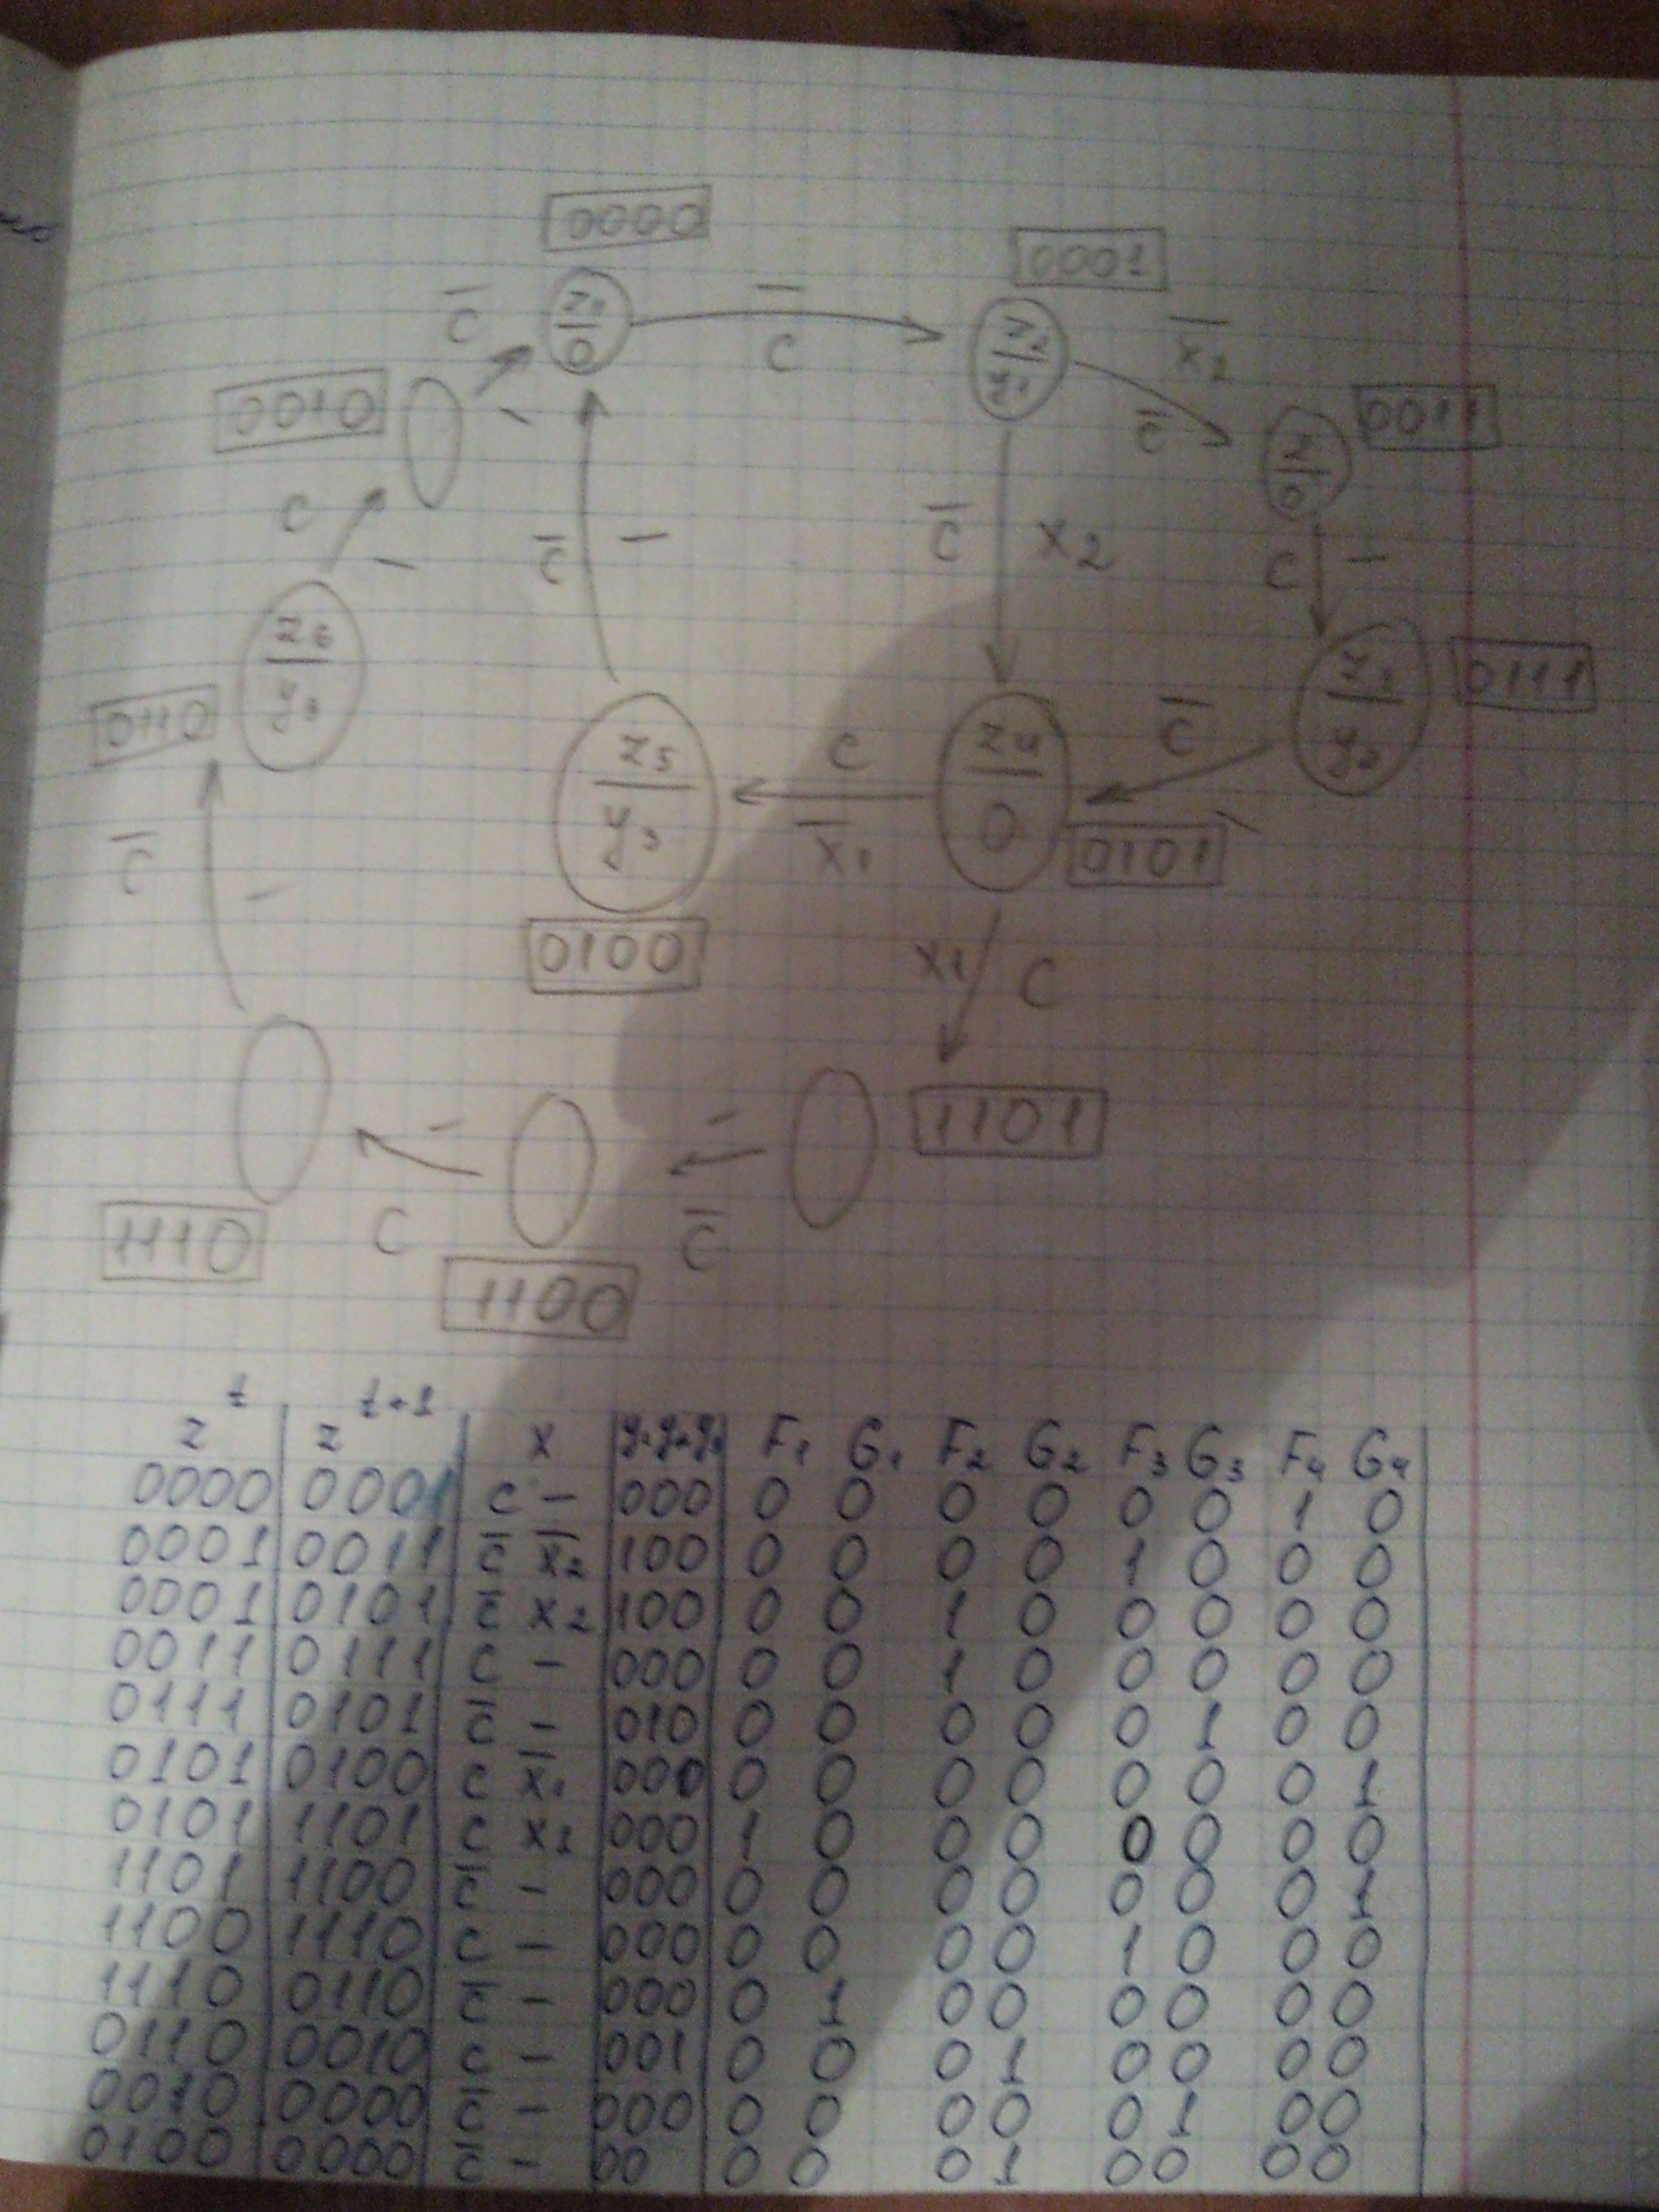 0000
0001
z1
0
—
c
z2
y1
x̅2
c̅
0011
z
0
c̅
0010
—
c
—
c̅
—
c̅
x2
c
—
z6
y3
0110
z5
y3
0100
c
x̅1
z4
0
0101
c̅
—
z3
y2
0111
c̅
—
x1
c
1101
—
c̅
—
c
1110
1100
z^t | z^t+1 | x | y1y2y3 | F1 G1 F2 G2 F3 G3 F4 G4
0000 | 0001 | c – | 000 | 0 0 0 0 0 0 1 0
0001 | 0011 | c̅ x̅2 | 100 | 0 0 0 0 1 0 0 0
0001 | 0101 | c̅ x2 | 100 | 0 0 1 0 0 0 0 0
0011 | 0111 | c – | 000 | 0 0 1 0 0 0 0 0
0111 | 0101 | c̅ – | 010 | 0 0 0 0 0 1 0 0
0101 | 0100 | c x̅1 | 000 | 0 0 0 0 0 0 0 1
0101 | 1101 | c x1 | 000 | 1 0 0 0 0 0 0 0
1101 | 1100 | c̅ – | 000 | 0 0 0 0 0 0 0 1
1100 | 1110 | c – | 000 | 0 0 0 0 1 0 0 0
1110 | 0110 | c̅ – | 000 | 0 1 0 0 0 0 0 0
0110 | 0010 | c – | 001 | 0 0 0 1 0 0 0 0
0010 | 0000 | c̅ – | 000 | 0 0 0 0 0 1 0 0
0100 | 0000 | c̅ – | 00 | 0 0 0 1 0 0 0 0